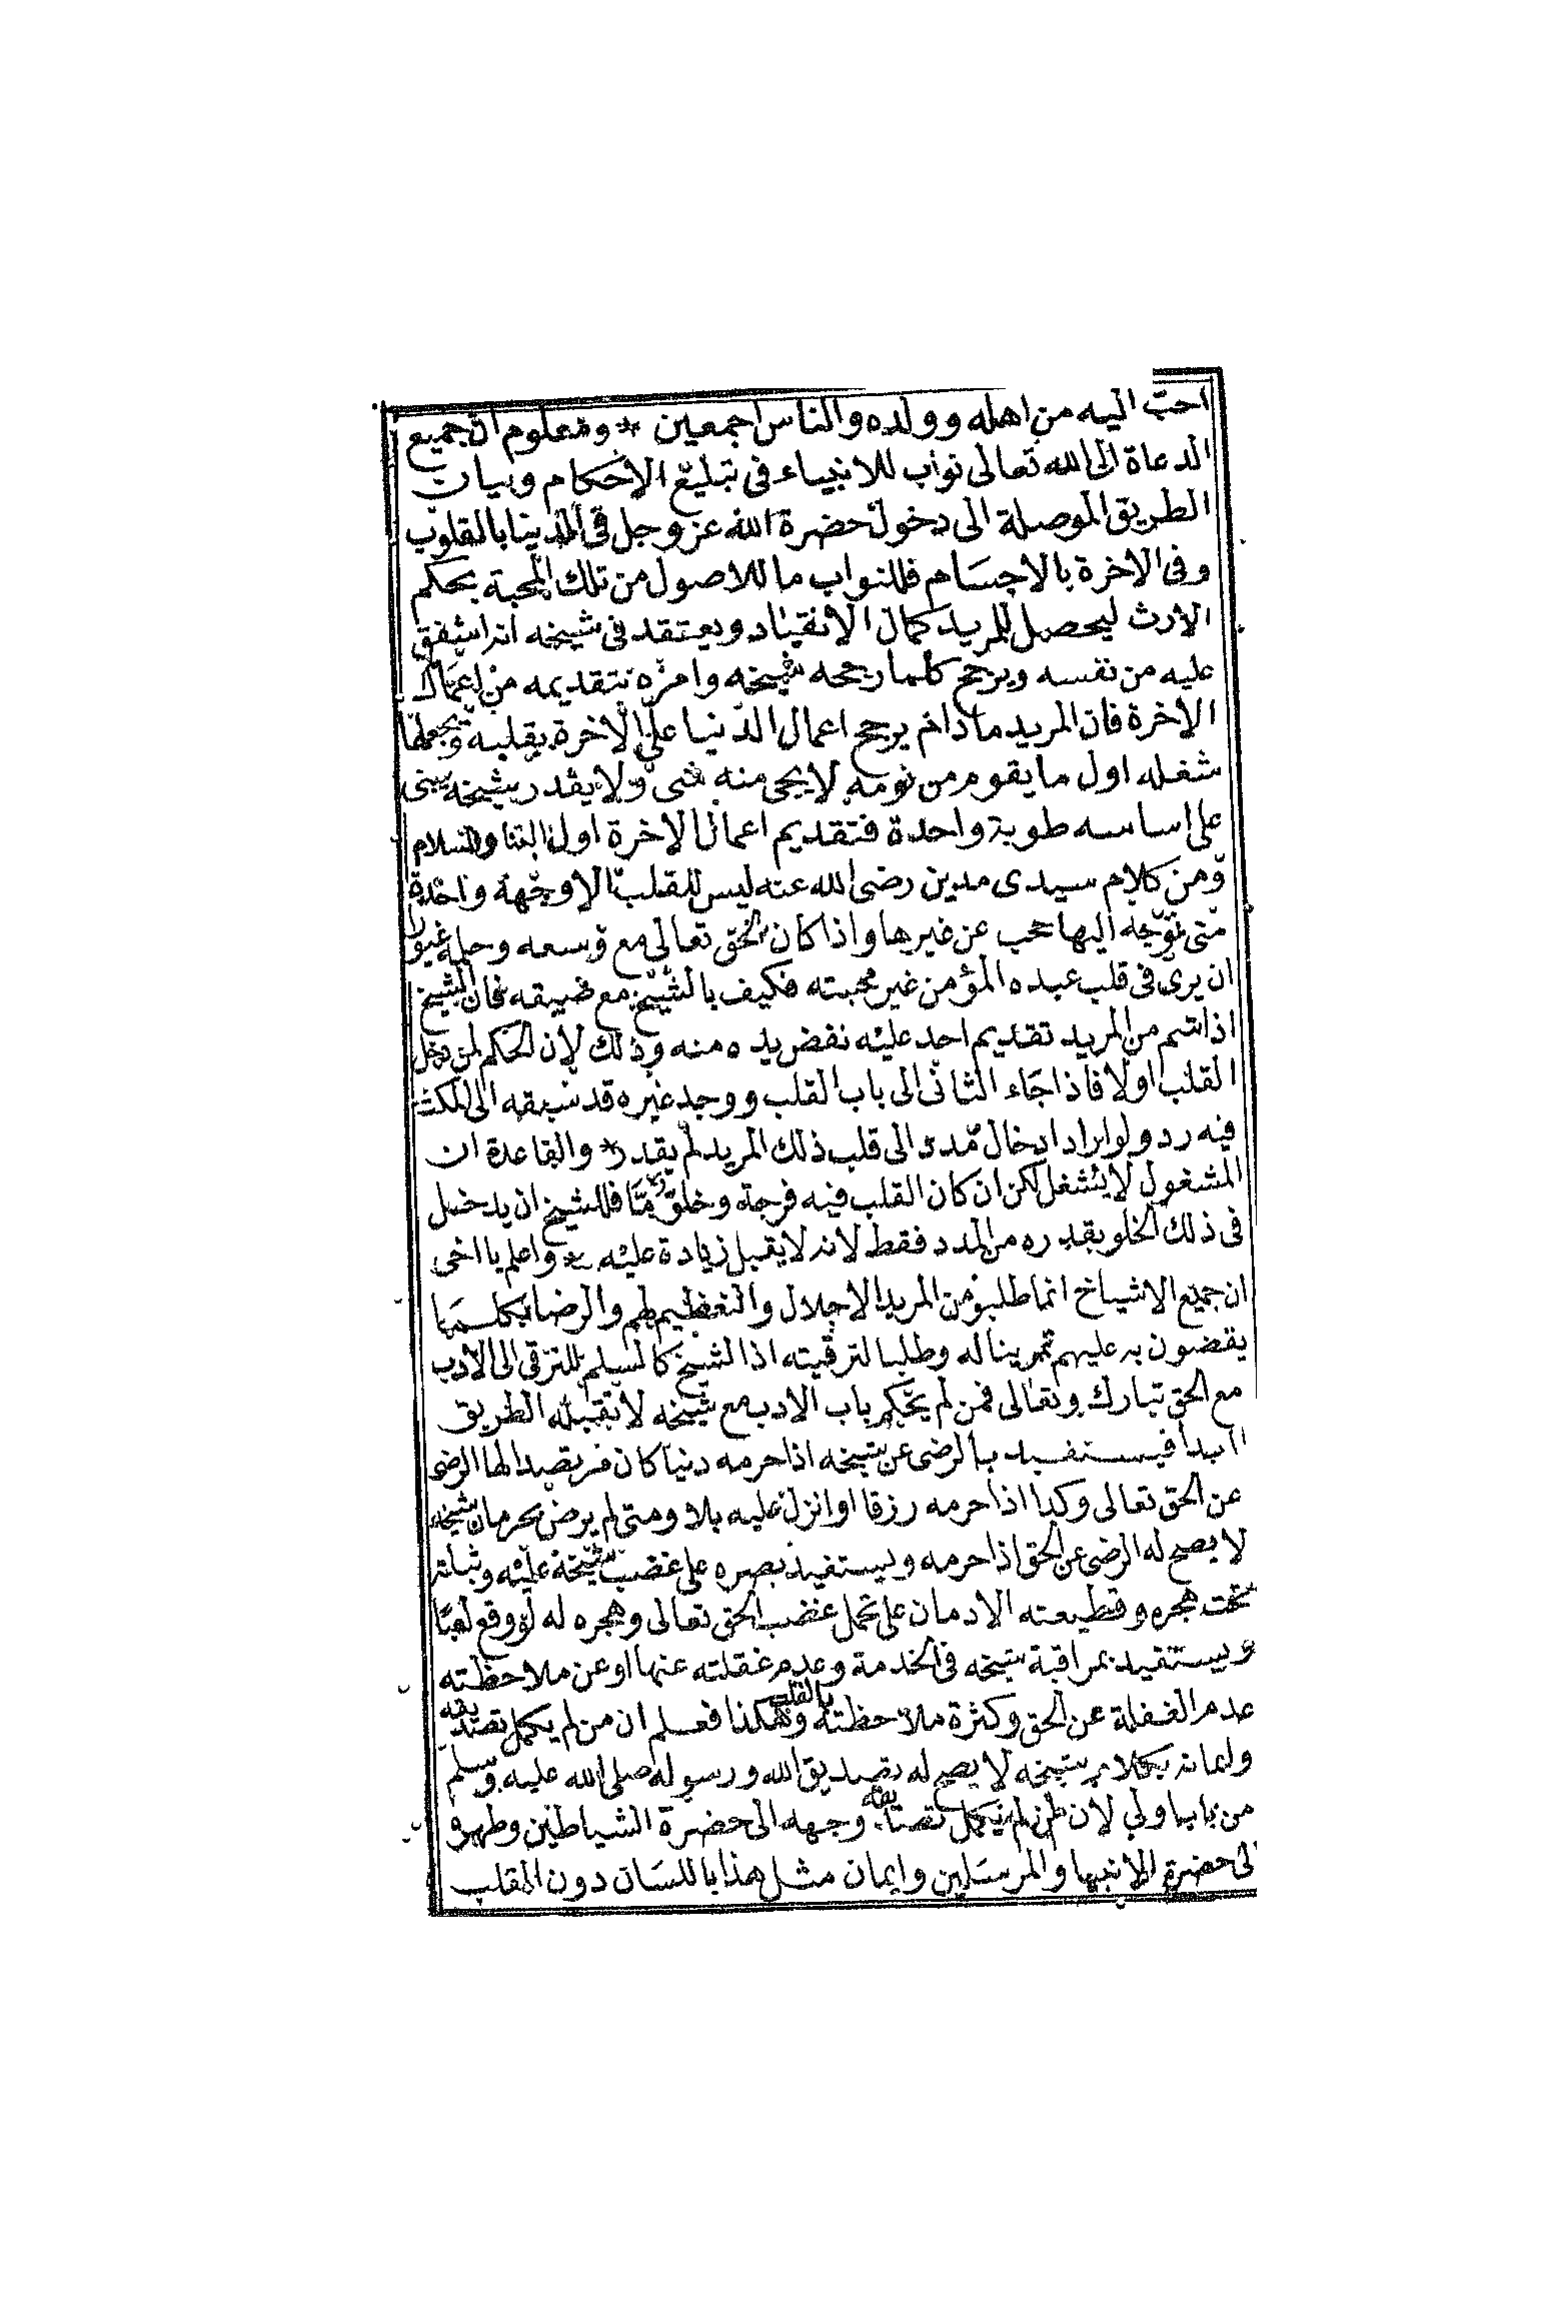 احبّ اليه من اهله وولده والناس اجمعين * ومعلوم ان جميع
الدعاة الى الله تعالى نواب للانبياء فى تبليغ الاحكام وبيان
الطريق الموصلة الى دخول حضرة الله عز وجل فى الدنيا بالقلوب
وفى الاخرة بالاجسام فللنواب ما للاصول من تلك المحبة بحكم
الارث ليحصل للمريد كمال الانقياد ويعتقد فى شيخه انه اشفق
عليه من نفسه ويرجح كلما رجحه شيخه وامره بتقديمه من اعمال
الاخرة فان المريد مادام يرجح اعمال الدنيا على الاخرة بقلبه ويجعلها
شغله اول ما يقوم من نومه لا يجى منه شى ولا يقدر شيخه يبنى
على اساسه طوبة واحدة فتقديم اعمال الاخرة اول البنا والسلام
ومن كلام سيدى مدين رضى الله عنه ليس للقلب الا وجهة واحدة
متى توجه اليها حجب عن غيرها واذا كان الحق تعالى مع وسعه وحلمه غيورا
ان يرى فى قلب عبده المؤمن غير محبته فكيف بالشيخ مع ضيقه فان الشيخ
اذا شم من المريد تقديم احد عليه نفض يده منه وذلك لان الحكم لمن دخل
القلب اولا فاذا جاء الثانى الى باب القلب ووجد غيره قد سبقه الى المكث
فيه رد ولو اراد ادخال مدد الى قلب ذلك المريد لم يقدر * والقاعدة ان
المشغول لا يشغل لكن ان كان القلب فيه فرجة وخلوّ مّا فللشيخ ان يدخل
فى ذلك الخلو بقدره من المدد فقط لانه لا يقبل زيادة عليه * واعلم يا اخى
ان جميع الاشياخ انما طلبو من المريد الاجلال والتعظيم لهم والرضا بكلما
يقضون به عليهم تمرينا له وطلبا لترقيته اذ الشيخ كالسلم للترقى الى الادب
مع الحق تبارك وتعالى فمن لم يحكم باب الادب مع شيخه لا تقبله الطريق
ابدا فيستفيد بالرضى عن شيخه اذا حرمه دنيا كان الرضى
عن الحق تعالى وكذا اذا حرمه رزقا او انزل عليه بلا ومتى لم يرض بحرمان شيخه
لا يصح له الرضى عن الحق اذا حرمه ويستفيد بصبره على غضب شيخه عليه وثباته
تحت هجره وقطيعته الادمان على تحمل غضب الحق تعالى وهجره له لو وقع
ويستفيد بمراقبة شيخه فى الخدمة وعدم غفلته عنها او عن ملاحظته
عدم الغفلة عن الحق وكثرة ملاحظته بالقلب وهكذا فعلم ان من لم يكمل تصديقه
وايمانه بكلام شيخه لا يصح له تصديق الله ورسوله صلى الله عليه وسلم
من باب اولى لان من لم يكمل تصديقه وجهه الى حضرة الشياطين وظهره
الى حضرة الانبيا والمرسلين وايمان مثل هذا باللسان دون القلب